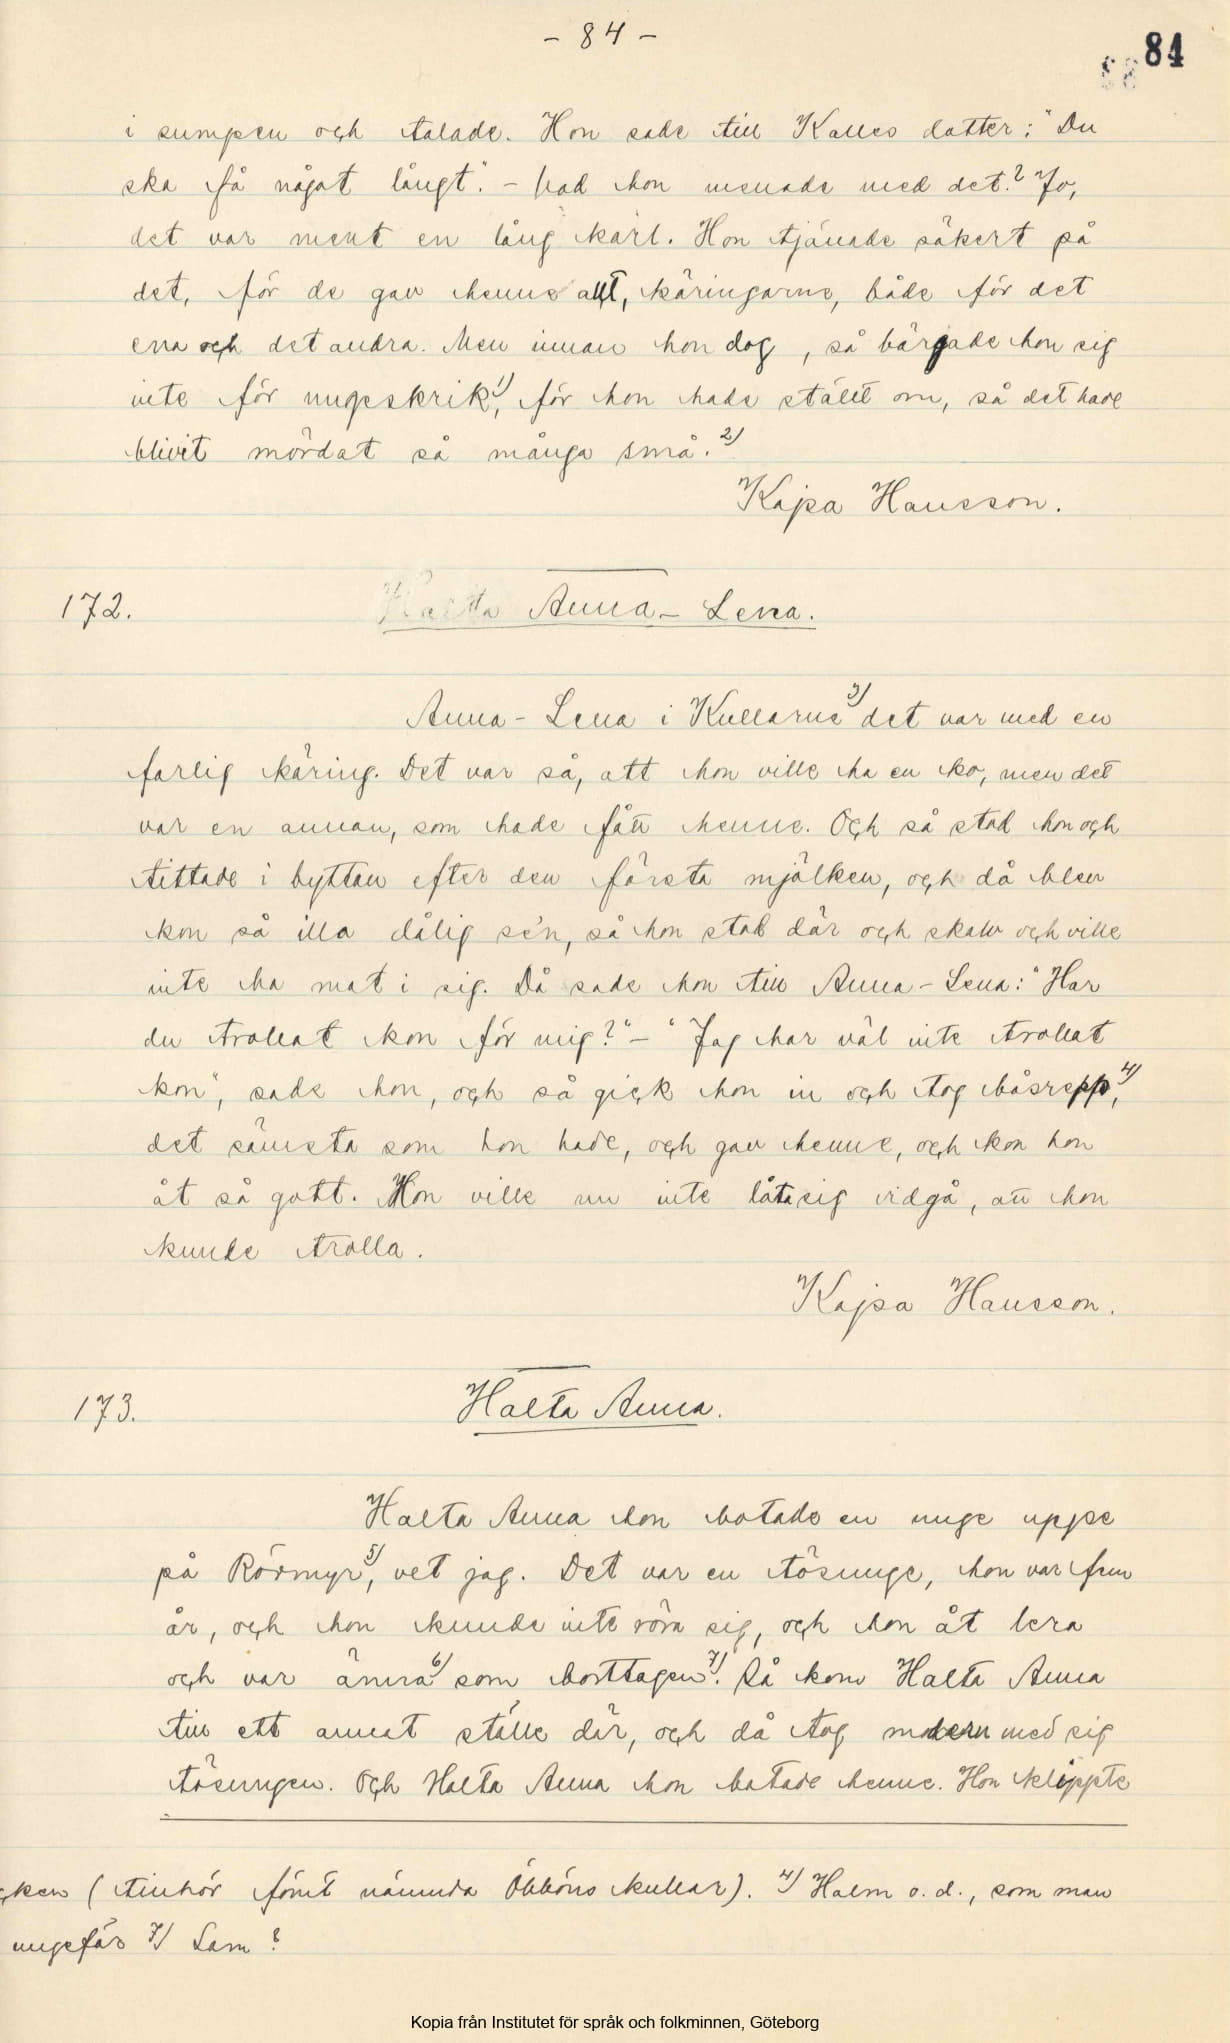 - 84 -
84
i sumpen och talade. Hon sade till Kalles dotter: "Du
ska få något långt". - Vad hon menade med det? Jo,
det var ment en lång karl. Hon tjänade säkert på
det, för de gav henne allt, käringarne, både för det
ena och det andra. Men innan hon dog, så bärgade hon sig
inte för ungeskrik,1) för hon hade ställt om, så det hade
blivit mördat så många små.2)
Kajsa Hansson.
172. Halta Anna-Lena.
Anna-Lena i Kullarne3) det var med en
farlig käring. Det var så, att hon ville ha en ko, men det
var en annan, som hade fått henne. Och så stod hon och
tittade i byttan efter den första mjölken, och då blev
kon så illa dålig se'n, så hon stod där och skalv och ville
inte ha mat i sig. Då sade hon till Anna-Lena: "Har
du trollat kon för mig?" - "Jag har väl inte trollat
kon", sade hon, och så gick hon in och tog båsrepp,4)
det sämsta som hon hade, och gav henne, och kon hon
åt så gott. Hon ville nu inte låta sig vidgå, att hon
kunde trolla.
Kajsa Hansson.
173. Halta Anna.
Halta Anna hon botade en unge uppe
på Rörmyr,5) vet jag. Det var en tösunge, hon var fem
år, och hon kunde inte röra sig, och hon åt lera
och var ämra6) som borttagen7). Så kom Halta Anna
till ett annat ställe där, och då tog modern med sig
tösungen. Och Halta Anna hon botade henne. Hon klippte
(tillhör förut nämnda Öbböns kullar). 4) Halm o. d., som man
ungefär 7) Lam?
Kopia från Institutet för språk och folkminnen, Göteborg